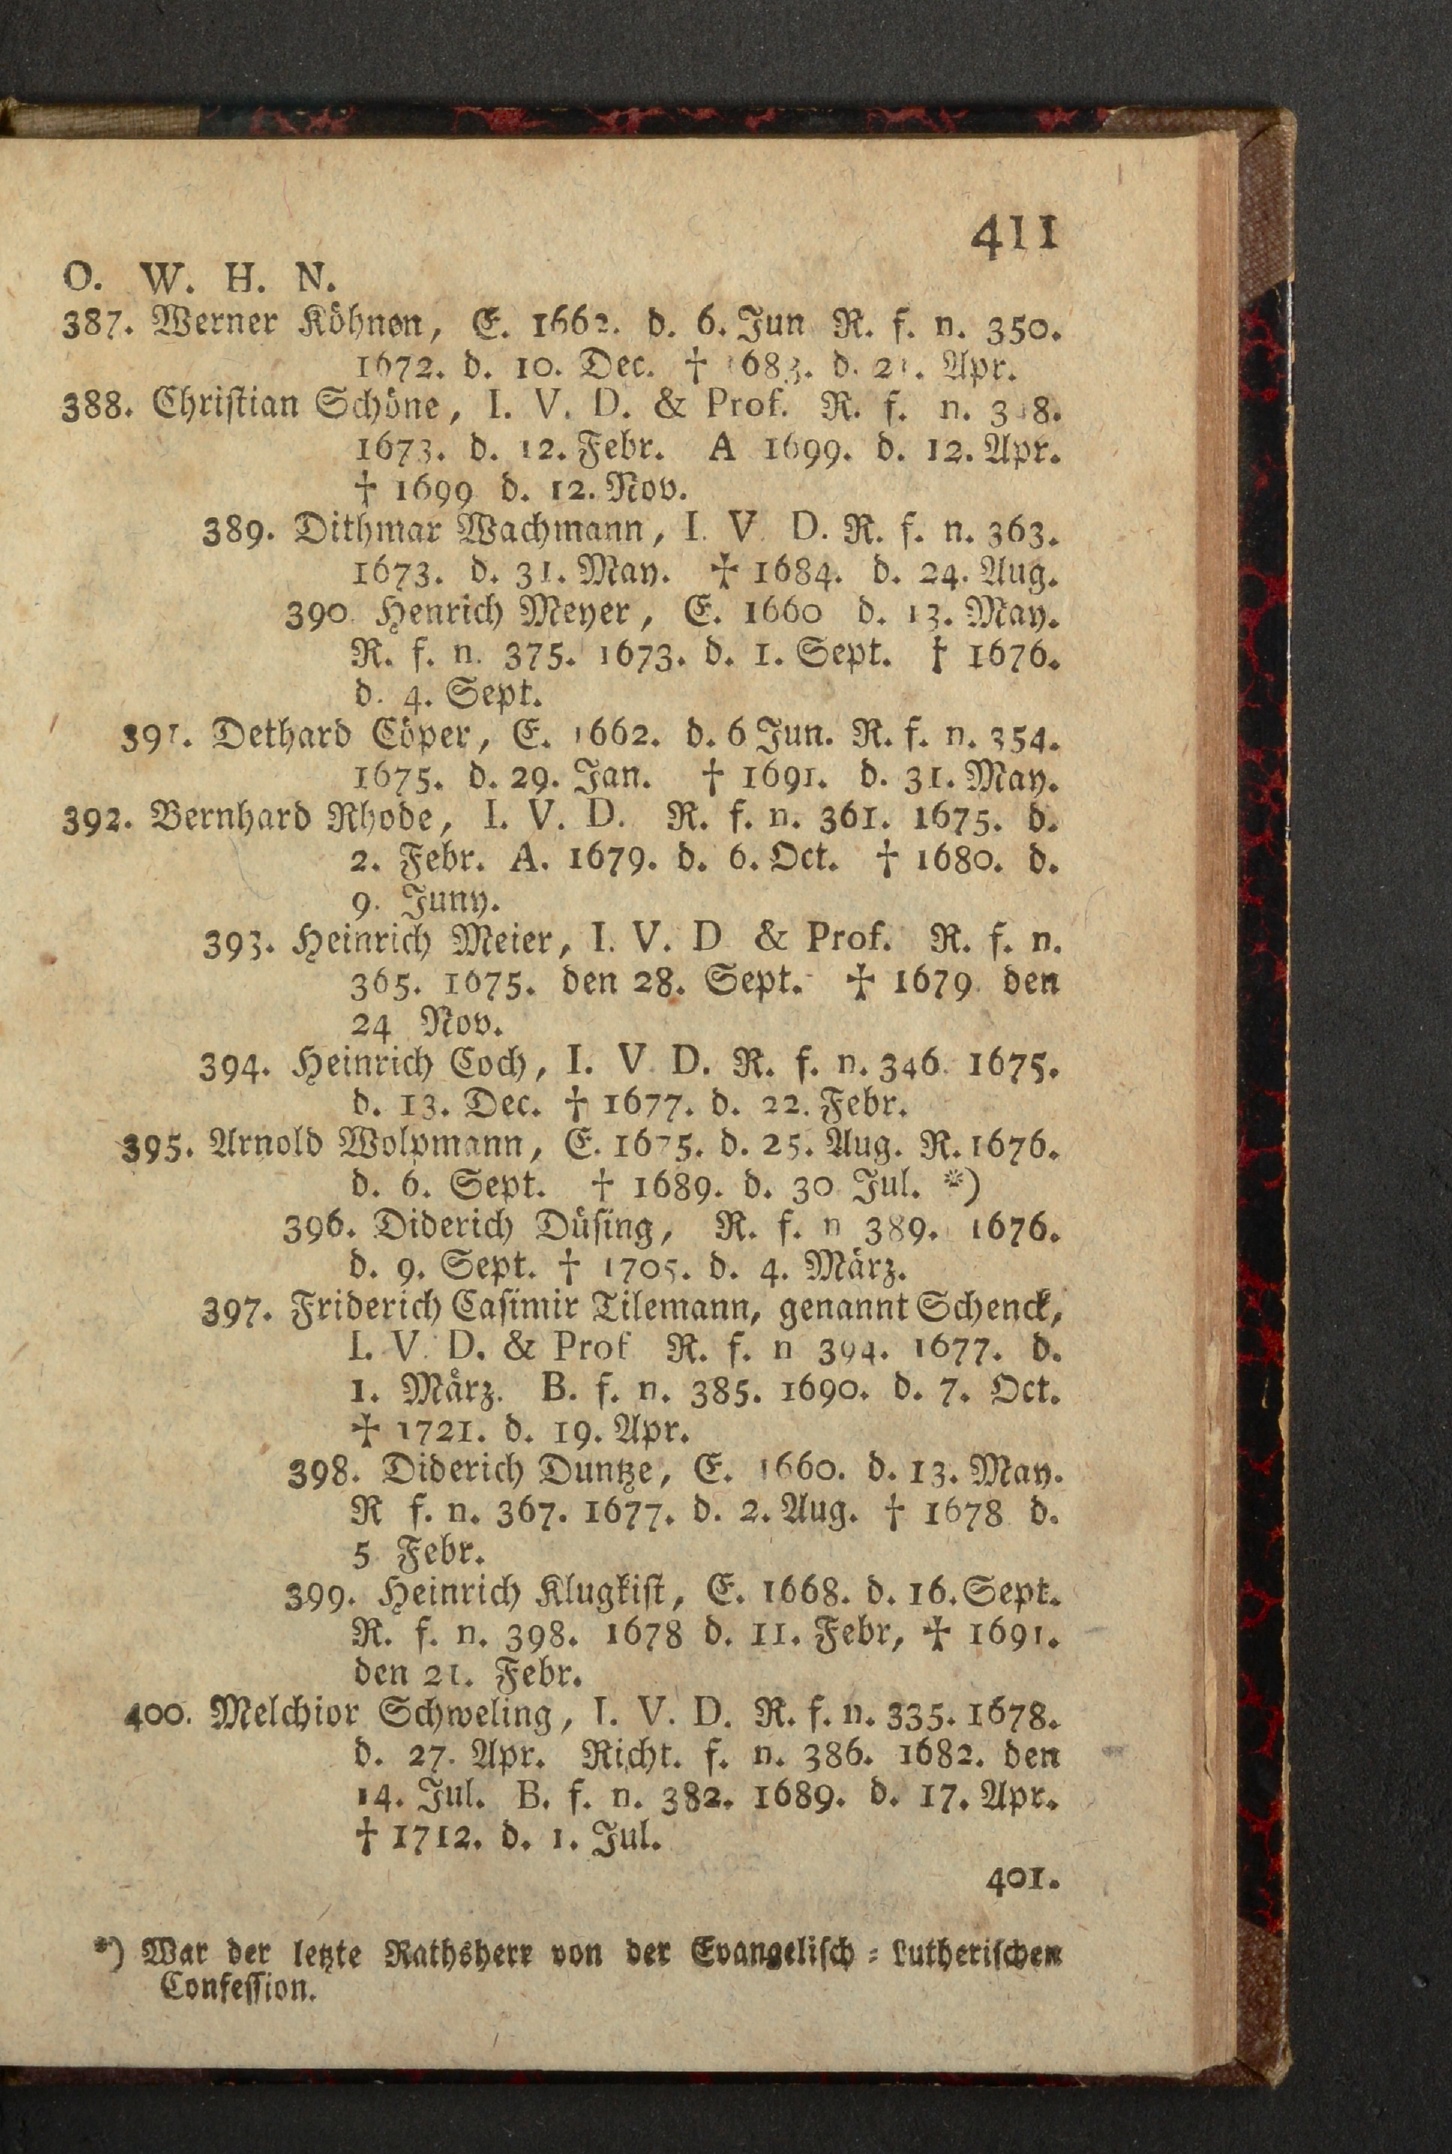 411
O. W. H. N.
387. Werner Köhnen, E. 1662. d. 6. Jun R. f. n. 350.
1672. d. 10. Dec. † 1683. d. 21. Apr.
388. Christian Schöne, I. V. D. & Prof. R. f. n.
1673. d. 12. Febr. A 1699. d. 12. Apr.
† 1699 d. 12. Nov.
389. Dithmar Wachmann, I. V. D. R. f. n. 363.
1673. d. 31. May. † 1684. d. 24. Aug.
390. Henrich Meyer, E. 1660 d. 13. May.
R. f. n. 375. 1673. d. 1. Sept. † 1676.
d. 4. Sept.
391. Dethard Cöper, E. 1662. d. 6 Jun. R. f. n. 354.
1675. d. 29. Jan. † 1691. d. 31. May.
392. Bernhard Rhode, I. V. D. R. f. n. 361. 1675. d.
2. Febr. A. 1679. d. 6. Oct. † 1680. d.
9. Juny.
393. Heinrich Meier, I. V. D & Prof. R. f. n.
365. 1675. den 28. Sept. † 1679. den
24 Nov.
394. Heinrich Coch, I. V. D. R. f. n. 346. 1675.
d. 13. Dec. † 1677. d. 22. Febr.
395. Arnold Wolpmann, E. 1675. d. 25. Aug. R. 1676.
d. 6. Sept. † 1689. d. 30 Jul. *)
396. Diderich Düsing, R. f. n 389. 1676.
d. 9. Sept. † 1705. d. 4. März.
397. Friderich Casimir Tilemann, genannt Schenck,
I. V. D. & Prof R. f. n 394. 1677. d.
1. März. B. f. n. 385. 1690. d. 7. Oct.
† 1721. d. 19. Apr.
398. Diderich Duntze, E. 1660. d. 13. May.
R f. n. 367. 1677. d. 2. Aug. † 1678 d.
5 Febr.
399. Heinrich Klugkist, E. 1668. d. 16. Sept.
R. f. n. 398. 1678 d. 11. Febr, † 1691.
den 21. Febr.
400. Melchior Schweling, I. V. D. R. f. n. 335. 1678.
d. 27. Apr. Richt. f. n. 386. 1682. den
14. Jul. B. f. n. 382. 1689. d. 17. Apr.
† 1712. d. 1. Jul.
401.
*) War der letzte Rathsherr von der Evangelisch = Lutherischen
Confession.